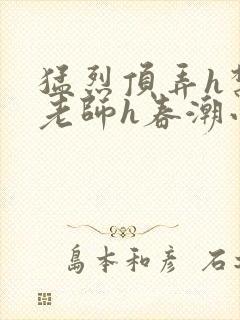 猛烈頂弄h
老師h春潮
島本和彦 石